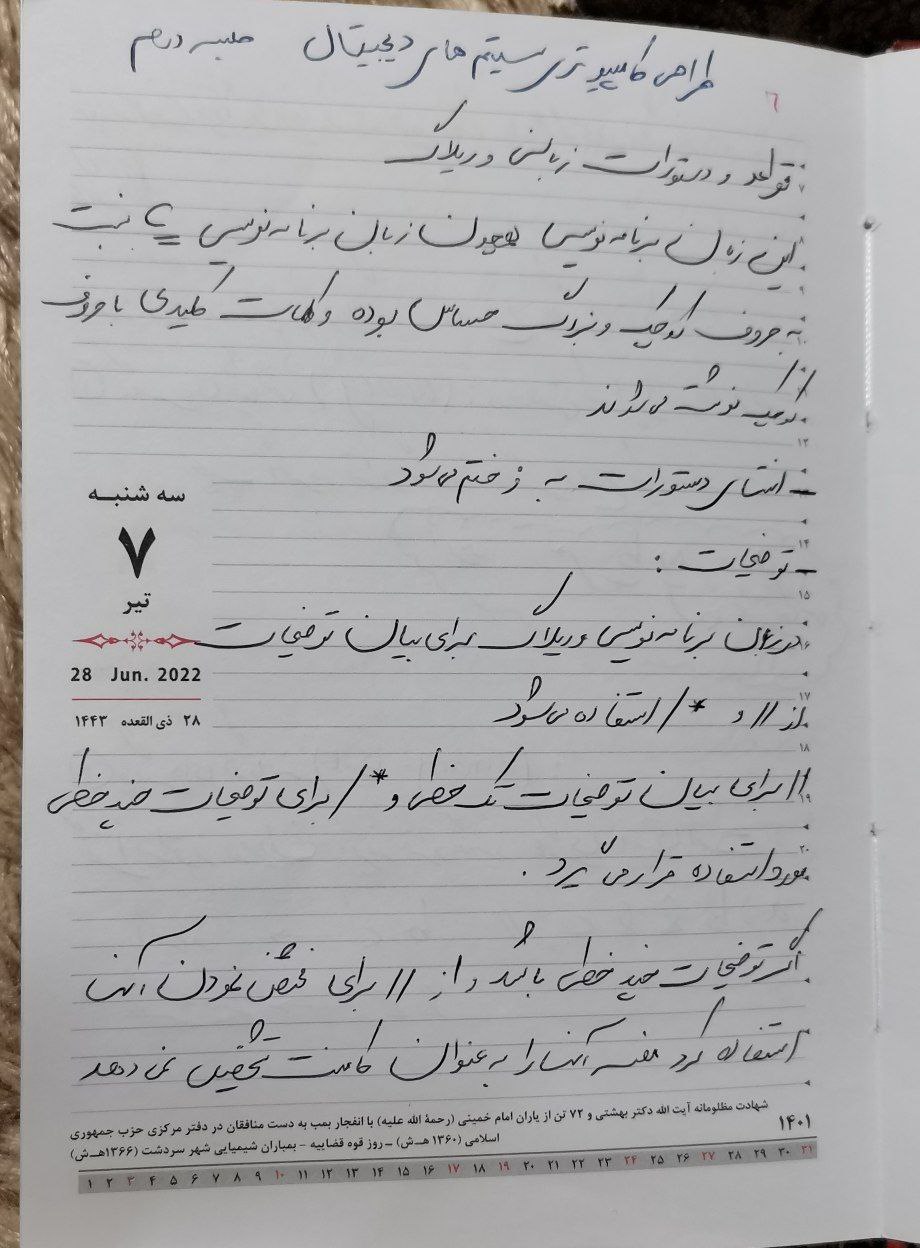 طراحی کامپیوتری سیستم های دیجیتال جلسه دوم
۶
قواعد و دستورات زبانس وریلاگ
این زبان برنامه نویسی همچون زبان برنامه نویسی c نسبت
به حروف کوچک و بزرگ حساس بوده و کلمات کلیدی با حروف
کوچک نوشته می شوند
- انتهای دستورات به ; ختم می شود
- توضیحات :
در زبان برنامه نویسی وریلاگ برای بیان توضیحات
از // و */ استفاده می شود
// برای بیان توضیحات تک خطی و */ برای توضیحات چند خطی
مورد استفاده قرار می گیرد .
اگر توضیحات چند خطی باشد و از // برای مشخص نمودن آنها
استفاده کرد همه آنها را به عنوان کامنت تشخیص نمی دهد
سه شنبه
۷
تیر
28 Jun. 2022
۲۸ ذی القعده ۱۴۴۳
۷
۸
۹
۱۰
۱۲
۱۴
۱۵
۱۷
۱۸
۱۹
۲۰
۱۴۰۱
شهادت مظلومانه آیت الله دکتر بهشتی و ۷۲ تن از یاران امام خمینی (رحمة الله علیه) با انفجار بمب به دست منافقان در دفتر مرکزی حزب جمهوری
اسلامی (۱۳۶۰ هـ‌ش) – روز قوه قضاییه – بمباران شیمیایی شهر سردشت (۱۳۶۶هـ‌ش)
۱ ۲ ۳ ۴ ۵ ۶ ۷ ۸ ۹ ۱۰ ۱۱ ۱۲ ۱۳ ۱۴ ۱۵ ۱۶ ۱۷ ۱۸ ۱۹ ۲۰ ۲۱ ۲۲ ۲۳ ۲۴ ۲۵ ۲۶ ۲۷ ۲۸ ۲۹ ۳۰ ۳۱